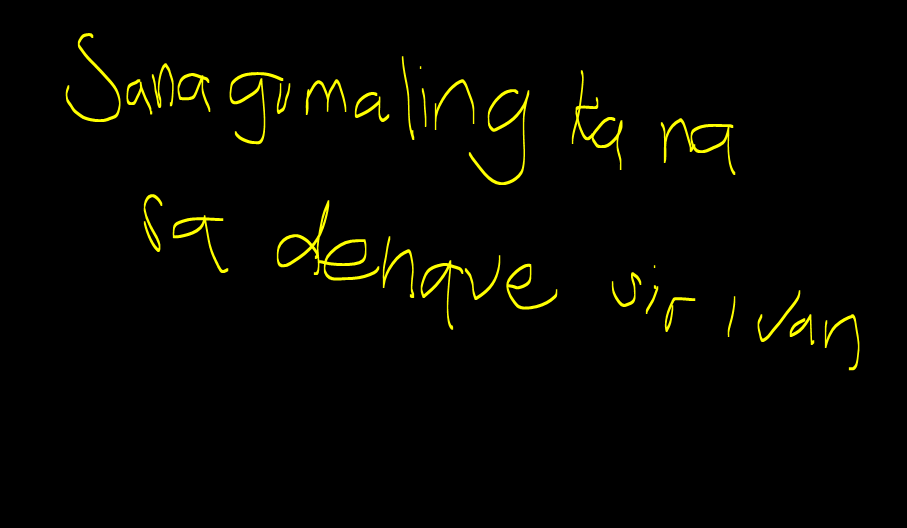 Sana gumaling ka na
sa dengue sir ivan